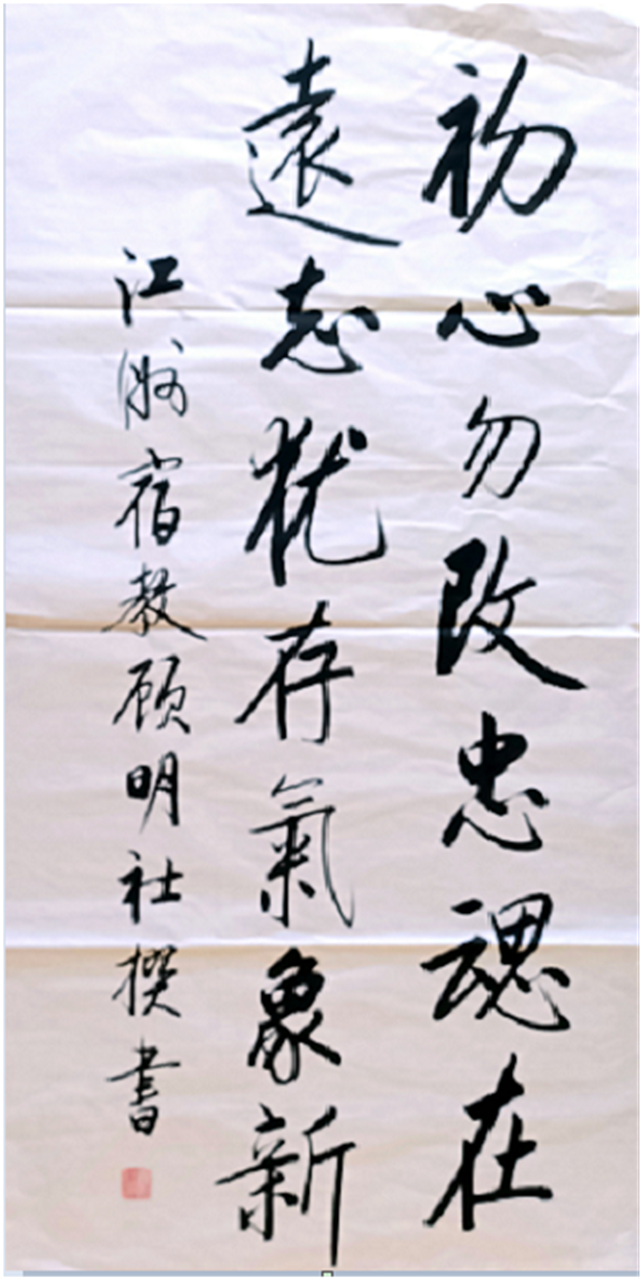 初心勿改忠魂在
遠志犹存氣象新
江浙宿教顾明社撰書